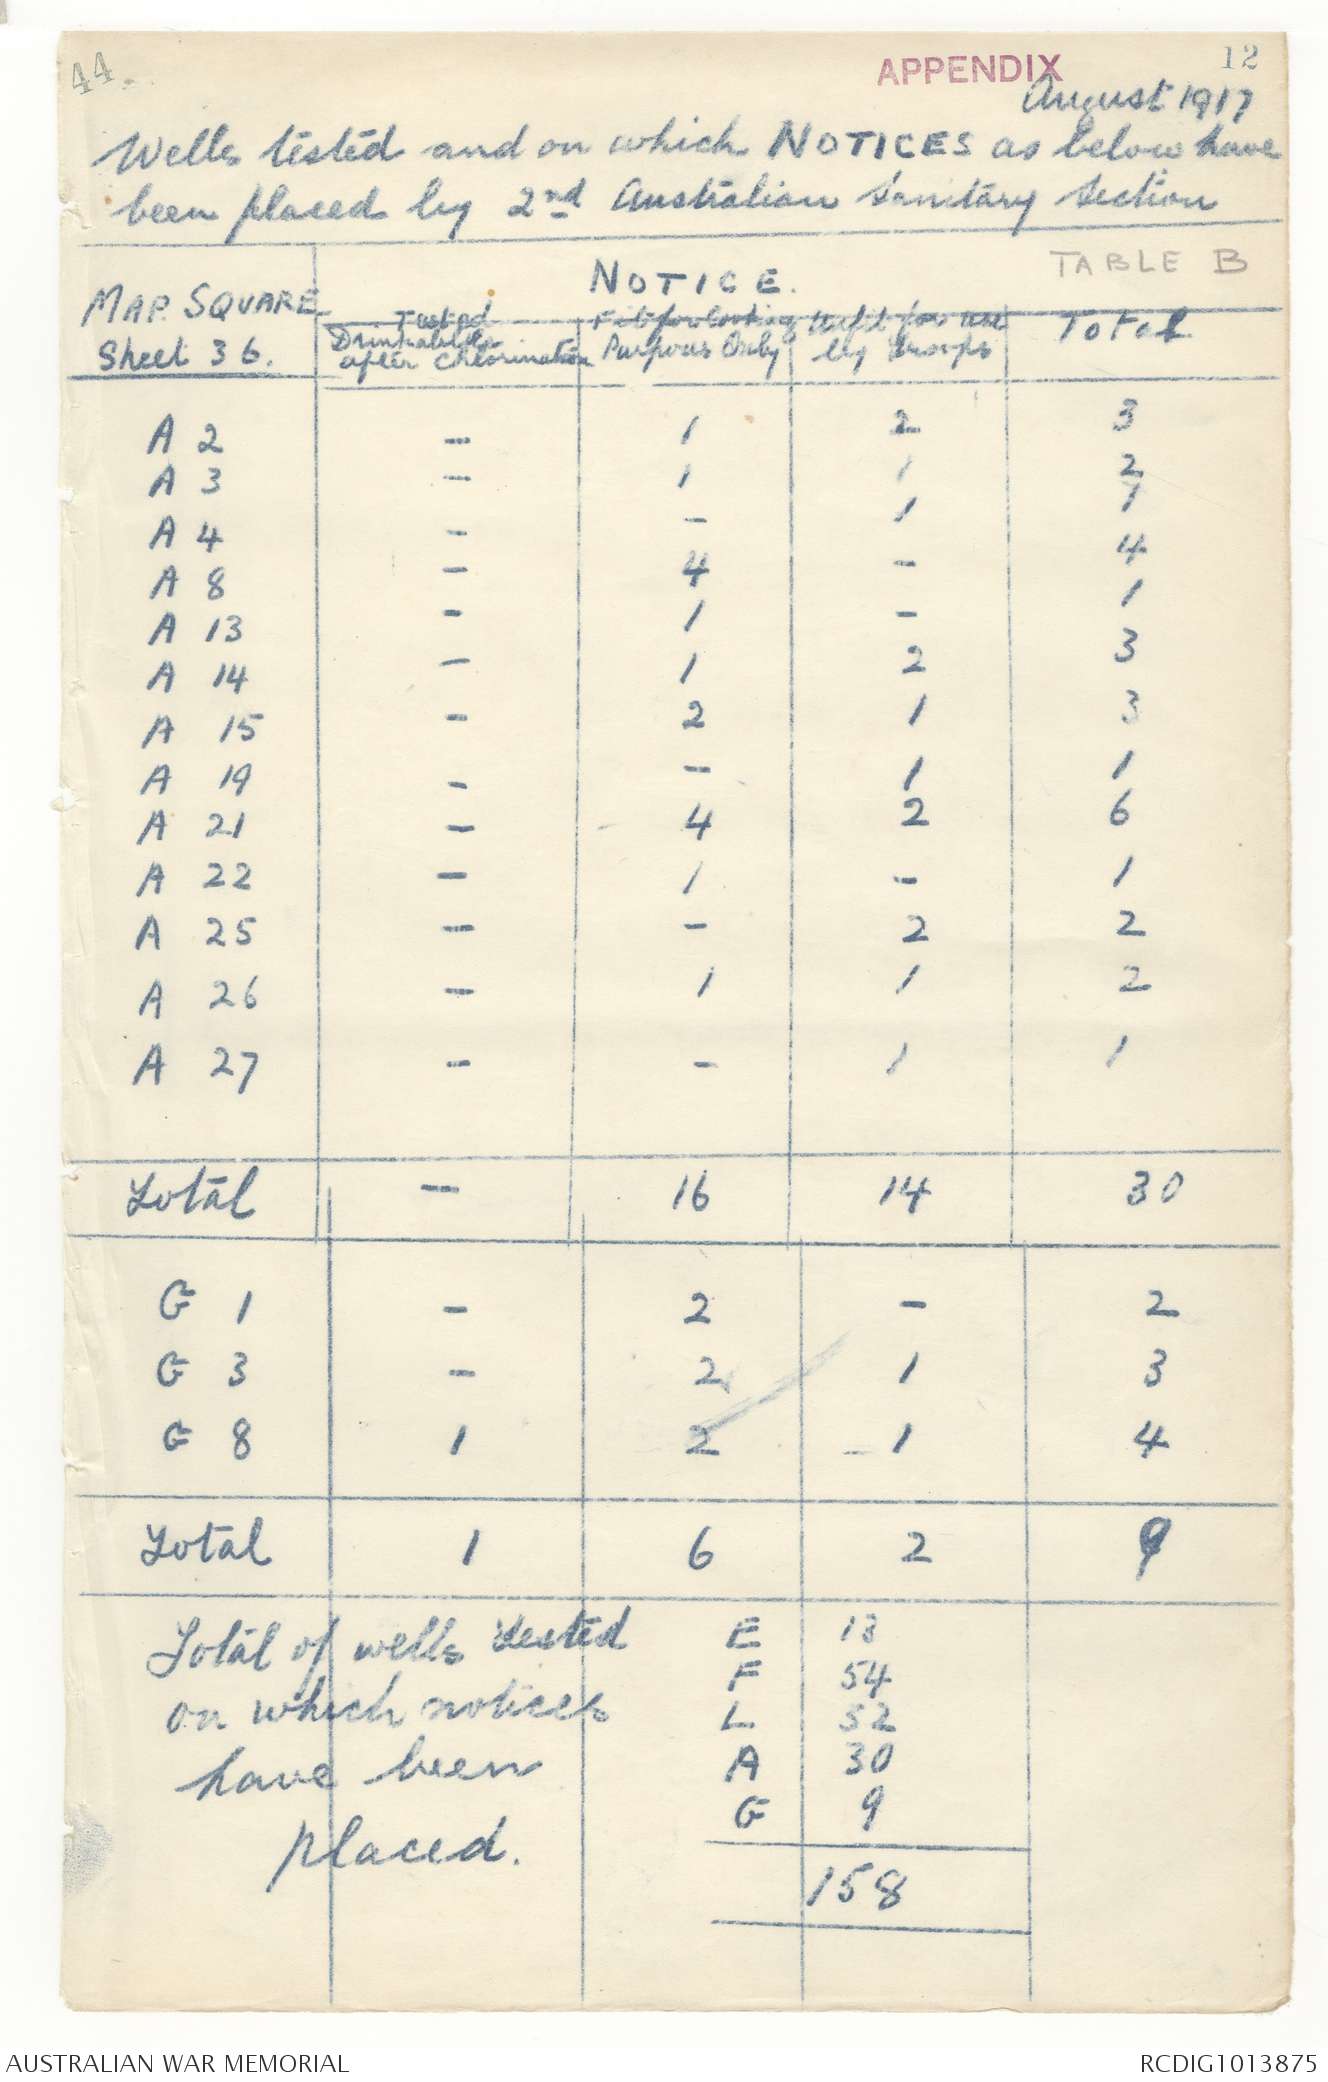 44.
APPENDIX
12
August 1917
Wells tested and on which NOTICES as below have
been placed by 2nd Australian Sanitary Section
TABLE B
MAP. SQUARE Sheet 36.
NOTICE.
Tested Drinkable after Chlorination
Fit for Cooking Purposes Only
Unfit for use by troops
Total
A 2 – 1 2 3
A 3 – 1 1 2
A 4 – – 1 1
A 8 – 4 – 4
A 13 – 1 – 1
A 14 – 1 2 3
A 15 – 2 1 3
A 19 – – 1 1
A 21 – 4 2 6
A 22 – 1 – 1
A 25 – – 2 2
A 26 – 1 1 2
A 27 – – 1 1
Total – 16 14 30
G 1 – 2 – 2
G 3 – 2 1 3
G 8 1 2 1 4
Total 1 6 2 9
Total of wells tested
on which notices
have been
placed.
E 13
F 54
L 52
A 30
G 9
158
AUSTRALIAN WAR MEMORIAL
RCDIG1013875